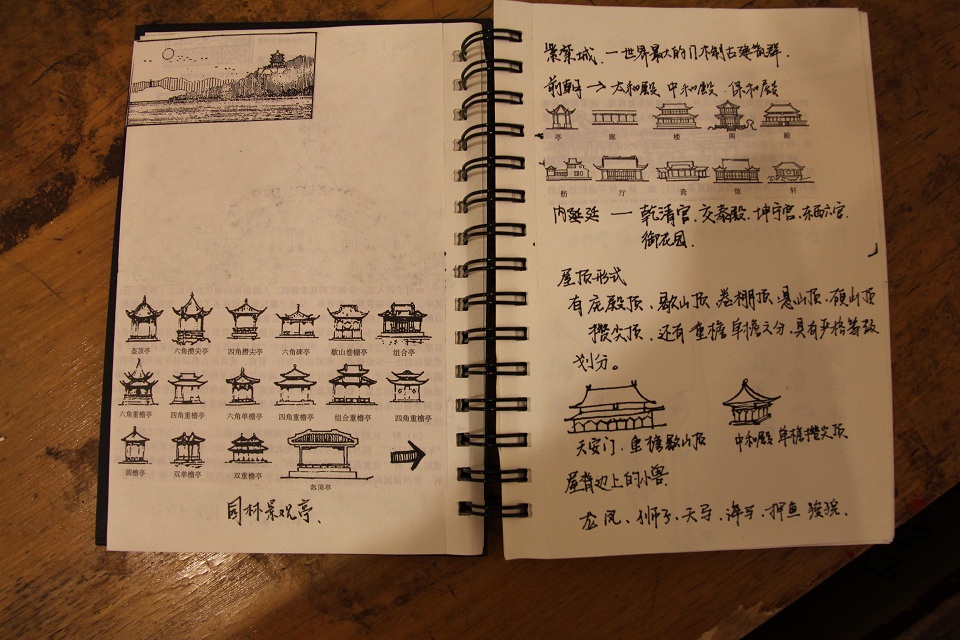 盔顶亭 六角攒尖亭 四角攒尖亭 六角碑亭 歇山卷棚亭 组合亭
六角重檐亭 四角重檐亭 六角单檐亭 四角重檐亭 组合重檐亭 四角重檐亭
圆檐亭 双单檐亭 双重檐亭 盝顶亭
园林景观亭.
紫禁城. 一世界最大的门木制古建筑群.
前朝 → 太和殿 中和殿. 保和殿
亭 廊 楼 阁 殿
舫 厅 斋 馆 轩
内廷 — 乾清宫、交泰殿、坤宁宫、东西六宫.
御花园.
屋顶形式
有庑殿顶、歇山顶、卷棚顶、悬山顶、硬山顶
攒尖顶、还有重檐单檐之分,具有严格等级
划分。
天安门. 重檐歇山顶 中和殿 单檐攒尖顶
屋脊边上的小兽.
龙、凤、狮子、天马、海马、押鱼 狻猊.